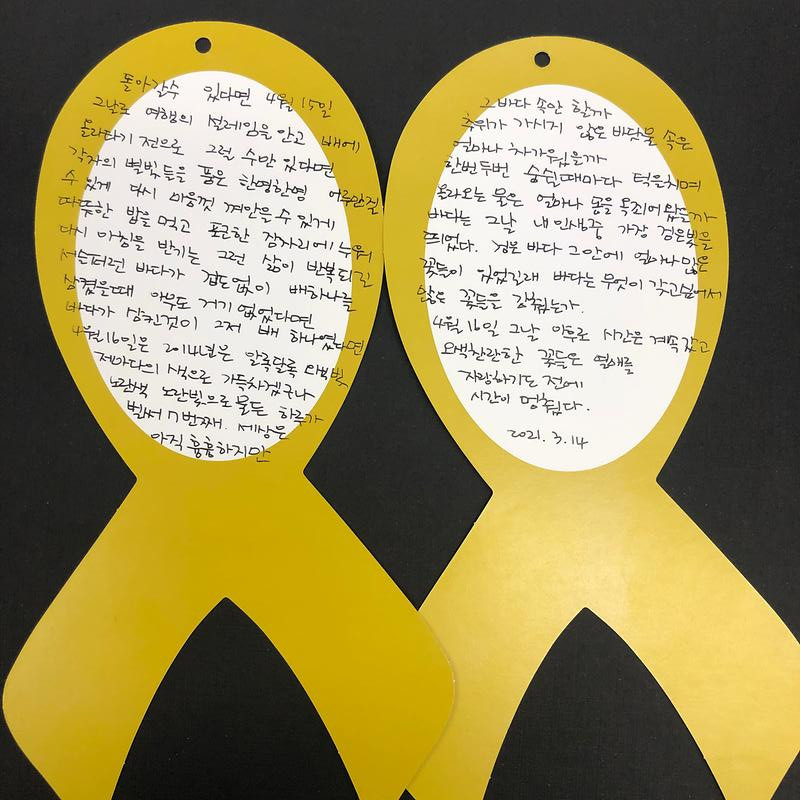 돌아갈수 있다면 4월 15일
그날로 여행의 설레임을 안고 배에
올라타기 전으로 그럴 수만 있다면
각자의 별빛들을 품은 한명한명 어루만질
수 있게 다시 마음껏 껴안을 수 있게
따뜻한 밥을 먹고 포근한 잠자리에 누워
다시 아침을 반기는 그런 삶이 반복되길
서슬퍼런 바다가 겁도없이 배하나를
삼켰을때 아무도 거기 없었다면
바다가 삼킨것이 그저 배 하나였다면
4월 16일은 2014년은 알록달록
제마다의 색으로 가득차겠구나
노란색 노란빛으로 물든 하루가
벌써 7번째. 세상은
아직 흉흉하지만
그 바다 속안 할까
추위가 가시지 않은 바닷물 속은
얼마나 차가워웠을까
한번두번 숨쉴때마다 턱을치며
올라오는 물은 얼마나 몸을 옥죄어 왔을까
바다는 그날 내 인생중 가장 검은빛을
띄었다. 검은 바다 그안에 얼마나 많은
꽃들이 있었길래 바다는 무엇이 갖고싶어서
많은 꽃들을 감췄는가.
4월 16일 그날 이후로 시간은 계속 갔고
오색찬란한 꽃들은 열매를
자랑하기도 전에
시간이 멈췄다.
2021. 3. 14